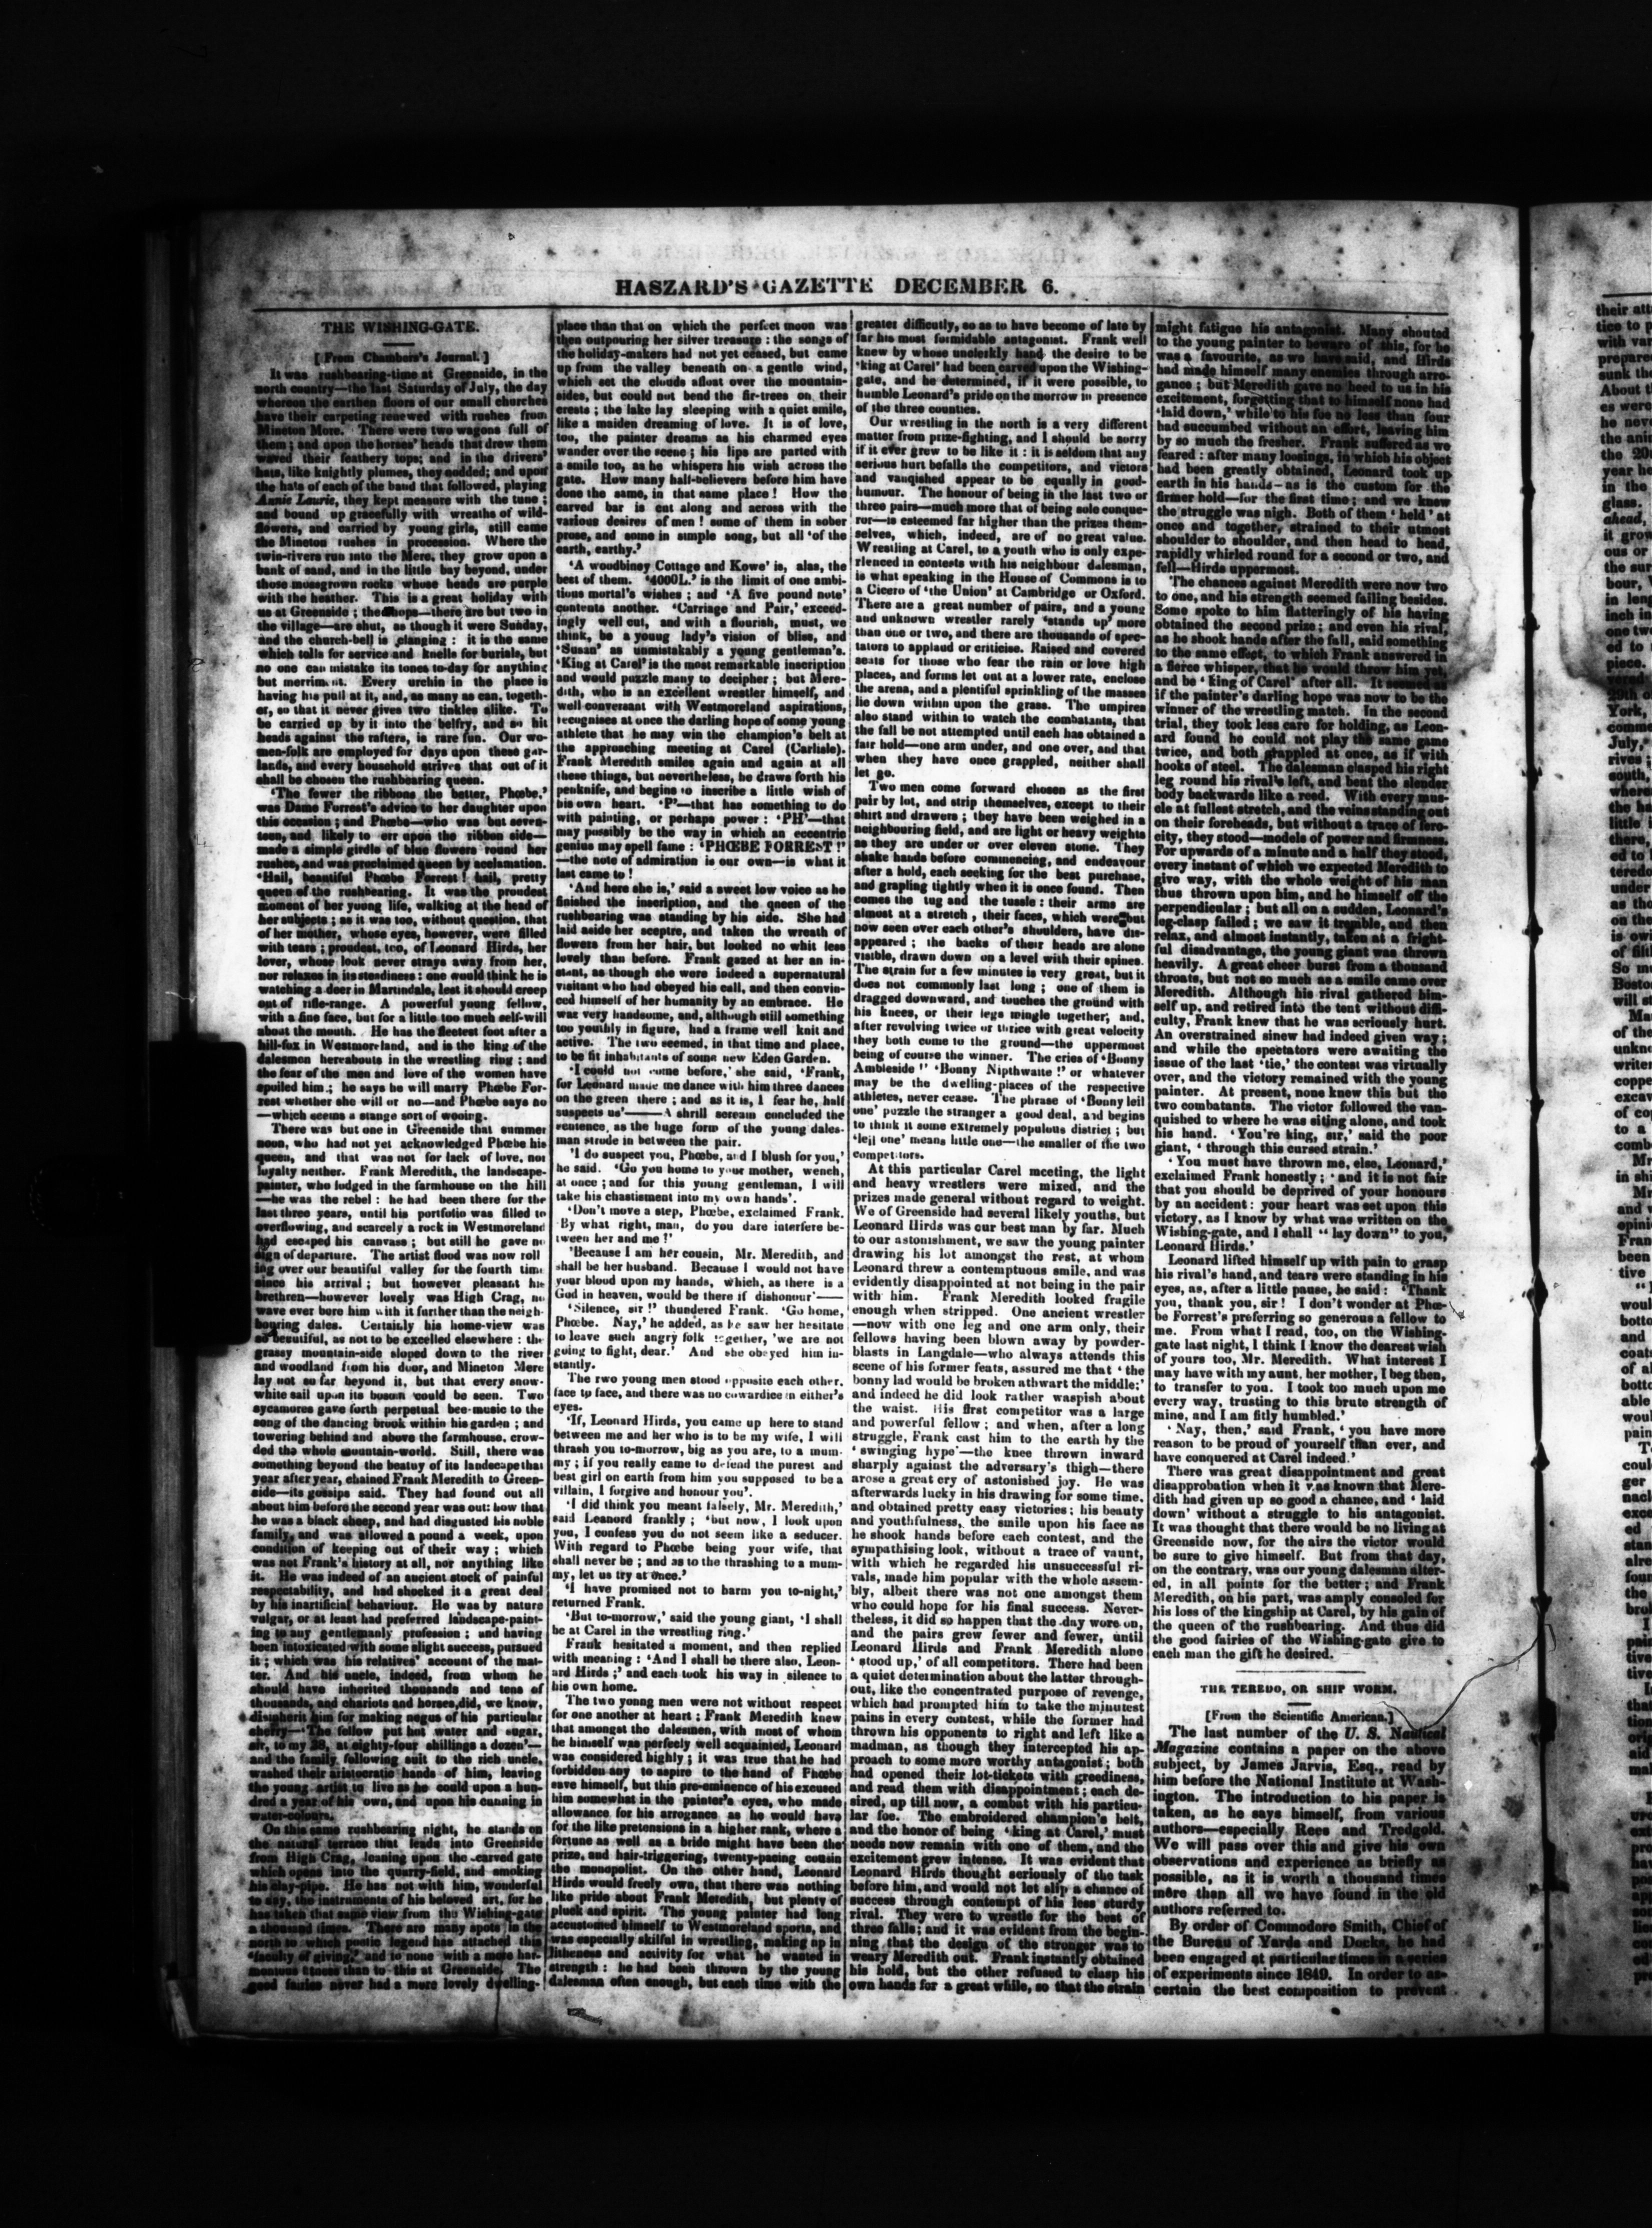 HASZARD'S GAZETTE DECEMBER 6.
THE WISHING-GATE.
[From Chambers's Journal.]
It was rushbearing-time at Greenside, in the
north country—the last Saturday of July, the day
whereon the earthen floors of our small churches
have their carpeting renewed with rushes from
Mineton More. There were two wagons full of
them; and upon the horses' heads that drew them
waved their feathery tops; and in the drivers'
hats, like knightly plumes, they nodded; and upon
the hats of each of the band that followed, playing
Annie Laurie, they kept measure with the tune;
and bound up gracefully with wreaths of wild-
flowers, and carried by young girls, still came
the Mineton rushes in procession. Where the
twin-rivers run into the Mere, they grow upon a
bank of sand, and in the little bay beyond, under
those mossgrown rocks whose heads are purple
with the heather. This is a great holiday with
us at Greenside; the shops—there are but two in
the village—are shut, as though it were Sunday,
and the church-bell is clanging: it is the same
which tolls for service and knells for burials, but
no one can mistake its tones to-day for anything
but merriment. Every urchin in the place is
having his pull at it, and, as many as can, togeth-
er, so that it never gives two tinkles alike. To
be carried up by it into the belfry, and so hit
heads against the rafters, is rare fun. Our wo-
men-folk are employed for days upon these gar-
lands, and every household strives that out of it
shall be chosen the rushbearing queen.
'The fewer the ribbons the better, Phœbe,'
was Dame Forrest's advice to her daughter upon
this occasion; and Phœbe—who was but seven-
teen, and likely to err upon the ribbon side—
made a simple girdle of blue flowers round her
rushes, and was proclaimed queen by acclamation.
'Hail, beautiful Phœbe Forrest! hail, pretty
queen of the rushbearing. It was the proudest
moment of her young life, walking at the head of
her subjects; as it was too, without question, that
of her mother, whose eyes, however, were filled
with tears; proudest, too, of Leonard Hirds, her
lover, whose look never strays away from her,
nor relaxes in its steadiness: one would think he is
watching a deer in Martindale, lest it should creep
out of rifle-range. A powerful young fellow,
with a fine face, but for a little too much self-will
about the mouth. He has the fleetest foot after a
hill-fox in Westmoreland, and is the king of the
dalesmen hereabouts in the wrestling ring; and
the fear of the men and love of the women have
spoiled him; he says he will marry Phœbe For-
rest whether she will or no—and Phœbe says no
—which seems a stange sort of wooing.
There was but one in Greenside that summer
noon, who had not yet acknowledged Phœbe his
queen, and that was not for lack of love, nor
loyalty neither. Frank Meredith, the landscape-
painter, who lodged in the farmhouse on the hill
—he was the rebel: he had been there for the
last three years, until his portfolio was filled to
overflowing, and scarcely a rock in Westmoreland
had escaped his canvass; but still he gave no
sign of departure. The artist flood was now roll
ing over our beautiful valley for the fourth time
since his arrival; but however pleasant his
brethren—however lovely was High Crag, no
wave ever bore him with it further than the neigh-
bouring dales. Certainly his home-view was
so beautiful, as not to be excelled elsewhere: the
grassy mountain-side sloped down to the river
and woodland from his door, and Mineton Mere
lay not so far beyond it, but that every snow-
white sail upon its bosom could be seen. Two
sycamores gave forth perpetual bee-music to the
song of the dancing brook within his garden; and
towering behind and above the farmhouse, crow-
ded the whole mountain-world. Still, there was
something beyond the beatuy of its landscape that
year after year, chained Frank Meredith to Green-
side—its gossips said. They had found out all
about him before the second year was out: how that
he was a black sheep, and had disgusted his noble
family, and was allowed a pound a week, upon
condition of keeping out of their way; which
was not Frank's history at all, nor anything like
it. He was indeed of an ancient stock of painful
respectability, and had shocked it a great deal
by his inartificial behaviour. He was by nature
vulgar, or at least had preferred landscape-paint-
ing to any gentlemanly profession; and having
been intoxicated with some slight success, pursued
it; which was his relatives' account of the mat-
ter. And his uncle, indeed, from whom he
should have inherited thousands and tens of
thousands, and chariots and horses, did, we know,
disinherit him for making negus of his particular
sherry—'The fellow put hot water and sugar,
sir, to my 28, at eighty-four shillings a dozen'—
and the family, following suit to the rich uncle,
washed their aristocratic hands of him, leaving
the young artist to live as he could upon a hun-
dred a year of his own, and upon his cunning in
water-colours.
On this same rushbearing night, he stands on
the natural terrace that leads into Greenside
from High Crag, leaning upon the carved gate
which opens into the quarry-field, and smoking
his clay-pipe. He has not with him, wonderful
to say, the instruments of his beloved art, for he
has taken that same view from the Wishing-gate
a thousand times. There are many spots in the
north to which poetic legend has attached this
'faculty of giving,' and to none with a more har-
monious fitness than to this at Greenside. The
good fairies never had a more lovely dwelling-
place than that on which the perfect moon was
then outpouring her silver treasure: the songs of
the holiday-makers had not yet ceased, but came
up from the valley beneath on a gentle wind,
which set the clouds afloat over the mountain-
sides, but could not bend the fir-trees on their
crests; the lake lay sleeping with a quiet smile,
like a maiden dreaming of love. It is of love,
too, the painter dreams as his charmed eyes
wander over the scene; his lips are parted with
a smile too, as he whispers his wish across the
gate. How many half-believers before him have
done the same, in that same place! How the
carved bar is cut along and across with the
various desires of men! some of them in sober
prose, and some in simple song, but all 'of the
earth, earthy.'
'A woodbiney Cottage and Kowe' is, alas, the
best of them. '4000L.' is the limit of one ambi-
tious mortal's wishes; and 'A five pound note'
contents another. 'Carriage and Pair,' exceed-
ingly well cut, and with a flourish, must, we
think, be a young lady's vision of bliss, and
'Susan' as unmistakably a young gentleman's.
'King at Carel' is the most remarkable inscription
and would puzzle many to decipher; but Mere-
dith, who is an excellent wrestler himself, and
well conversant with Westmoreland aspirations,
recognises at once the darling hope of some young
athlete that he may win the champion's belt at
the approaching meeting at Carel (Carlisle).
Frank Meredith smiles again and again at all
these things, but nevertheless, he draws forth his
penknife, and begins to inscribe a little wish of
his own heart. 'P'—that has something to do
with painting, or perhaps power: 'PH'—that
may possibly be the way in which an eccentric
genius may spell fame: 'PHŒBE FORREST!'
—the note of admiration is our own—is what it
last came to!
'And here she is,' said a sweet low voice as he
finished the inscription, and the queen of the
rushbearing was standing by his side. She had
laid aside her sceptre, and taken the wreath of
flowers from her hair, but looked no whit less
lovely than before. Frank gazed at her an in-
stant, as though she were indeed a supernatural
visitant who had obeyed his call, and then convin-
ced himself of her humanity by an embrace. He
was very handsome, and, although still something
too youthly in figure, had a frame well knit and
active. The two seemed, in that time and place,
to be fit inhabitants of some new Eden Garden.
'I could not come before,' she said, 'Frank,
for Leonard made me dance with him three dances
on the green there; and as it is, I fear he, half
suspects us'—— A shrill scream concluded the
sentence, as the huge form of the young dales-
man strode in between the pair.
'I do suspect you, Phœbe, and I blush for you,'
he said. 'Go you home to your mother, wench,
at once; and for this young gentleman, I will
take his chastisment into my own hands'.
'Don't move a step, Phœbe, exclaimed Frank.
'By what right, man, do you dare interfere be-
tween her and me?'
'Because I am her cousin, Mr. Meredith, and
shall be her husband. Because I would not have
your blood upon my hands, which, as there is a
God in heaven, would be there if dishonour'——
'Silence, sir!' thundered Frank. 'Go home,
Phœbe. Nay,' he added, as he saw her hesitate
to leave such angry folk together, 'we are not
going to fight, dear.' And she obeyed him in-
stantly.
The two young men stood opposite each other,
face to face, and there was no cowardice in either's
eyes.
'If, Leonard Hirds, you came up here to stand
between me and her who is to be my wife, I will
thrash you to-morrow, big as you are, to a mum-
my; if you really came to defend the purest and
best girl on earth from him you supposed to be a
villain, I forgive and honour you'.
'I did think you meant falsely, Mr. Meredith,'
said Leanord frankly; 'but now, I look upon
you, I confess you do not seem like a seducer.
With regard to Phœbe being your wife, that
shall never be; and as to the thrashing to a mum-
my, let us try at once.'
'I have promised not to harm you to-night,'
returned Frank.
'But to-morrow,' said the young giant, 'I shall
be at Carel in the wrestling ring.'
Frank hesitated a moment, and then replied
with meaning: 'And I shall be there also, Leon-
ard Hirds;' and each took his way in silence to
his own home.
The two young men were not without respect
for one another at heart; Frank Meredith knew
that amongst the dalesmen, with most of whom
he himself was perfecly well acquainted, Leonard
was considered highly; it was true that he had
forbidden any to aspire to the hand of Phœbe
save himself, but this pre-eminence of his excused
him somewhat in the painter's eyes, who made
allowance for his arrogance as he would have
for the like pretensions in a higher rank, where a
fortune as well as a bride might have been the
prize, and hair-triggering, twenty-pacing cousin
the monopolist. On the other hand, Leonard
Hirds would freely own, that there was nothing
like pride about Frank Meredith, but plenty of
pluck and spirit. The young painter had long
accustomed himself to Westmoreland sports, and
was especially skilful in wrestling, making up in
litheness and activity for what he wanted in
strength: he had been thrown by the young
dalesman often enough, but each time with the
greater difficutly, so as to have become of late by
far his most formidable antagonist. Frank well
knew by whose unclerkly hand the desire to be
'king at Carel' had been carved upon the Wishing-
gate, and he determined, if it were possible, to
humble Leonard's pride on the morrow in presence
of the three counties.
Our wrestling in the north is a very different
matter from prize-fighting, and I should be sorry
if it ever grew to be like it: it is seldom that any
serious hurt befalls the competitors, and victors
and vanquished appear to be equally in good-
humour. The honour of being in the last two or
three pairs—much more that of being sole conque-
ror—is esteemed far higher than the prizes them-
selves, which, indeed, are of no great value.
Wrestling at Carel, to a youth who is only expe-
rienced in contests with his neighbour dalesman,
is what speaking in the House of Commons is to
a Cicero of 'the Union' at Cambridge or Oxford.
There are a great number of pairs, and a young
and unknown wrestler rarely 'stands up' more
than one or two, and there are thousands of spec-
tators to applaud or criticise. Raised and covered
seats for those who fear the rain or love high
places, and forms let out at a lower rate, enclose
the arena, and a plentiful sprinkling of the masses
lie down within upon the grass. The umpires
also stand within to watch the combatants, that
the fall be not attempted until each has obtained a
fair hold—one arm under, and one over, and that
when they have once grappled, neither shall
let go.
Two men come forward chosen as the first
pair by lot, and strip themselves, except to their
shirt and drawers; they have been weighed in a
neighbouring field, and are light or heavy weights
as they are under or over eleven stone. They
shake hands before commencing, and endeavour
after a hold, each seeking for the best purchase,
and grapling tightly when it is once found. Then
comes the tug and the tussle: their arms are
almost at a stretch, their faces, which were but
now seen over each other's shoulders, have dis-
appeared; the backs of their heads are alone
visible, drawn down on a level with their spines.
The strain for a few minutes is very great, but it
does not commonly last long; one of them is
dragged downward, and touches the ground with
his knees, or their legs mingle together, and,
after revolving twice or thrice with great velocity
they both come to the ground—the uppermost
being of course the winner. The cries of 'Bonny
Ambleside!' 'Bonny Nipthwaite!' or whatever
may be the dwelling-places of the respective
athletes, never cease. The phrase of 'Bonny leil
one' puzzle the stranger a good deal, and begins
to think it some extremely populous district; but
'leil one' means little one—the smaller of the two
competitors.
At this particular Carel meeting, the light
and heavy wrestlers were mixed, and the
prizes made general without regard to weight.
We of Greenside had several likely youths, but
Leonard Hirds was our best man by far. Much
to our astonishment, we saw the young painter
drawing his lot amongst the rest, at whom
Leonard threw a contemptuous smile, and was
evidently disappointed at not being in the pair
with him. Frank Meredith looked fragile
enough when stripped. One ancient wrestler
—now with one leg and one arm only, their
fellows having been blown away by powder-
blasts in Langdale—who always attends this
scene of his former feats, assured me that 'the
bonny lad would be broken athwart the middle;'
and indeed he did look rather waspish about
the waist. His first competitor was a large
and powerful fellow; and when, after a long
struggle, Frank cast him to the earth by the
'swinging hype'—the knee thrown inward
sharply against the adversary's thigh—there
arose a great cry of astonished joy. He was
afterwards lucky in his drawing for some time,
and obtained pretty easy victories; his beauty
and youthfulness, the smile upon his face as
he shook hands before each contest, and the
sympathising look, without a trace of vaunt,
with which he regarded his unsuccessful ri-
vals, made him popular with the whole assem-
bly, albeit there was not one amongst them
who could hope for his final success. Never-
theless, it did so happen that the day wore on,
and the pairs grew fewer and fewer, until
Leonard Hirds and Frank Meredith alone
'stood up,' of all competitors. There had been
a quiet determination about the latter through-
out, like the concentrated purpose of revenge,
which had prompted him to take the minutest
pains in every contest, while the former had
thrown his opponents to right and left like a
madman, as though they intercepted his ap-
proach to some more worthy antagonist; both
had opened their lot-tickets with greediness,
and read them with disappointment; each de-
sired, up till now, a combat with his particu-
lar foe. The embroidered champion's belt,
and the honor of being 'king at Carel,' must
needs now remain with one of them, and the
excitement grew intense. It was evident that
Leonard Hirds thought seriously of the task
before him, and would not let slip a chance of
success through contempt of his less sturdy
rival. They were to wrestle for the best of
three falls; and it was evident from the begin-
ning that the design of the stronger was to
weary Meredith out. Frank instantly obtained
his hold, but the other refused to clasp his
own hands for a great while, so that the strain
might fatigue his antagonist. Many shouted
to the young painter to beware of this, for he
was a favourite, as we have said, and Hirds
had made himself many enemies through arro-
gance; but Meredith gave no heed to us in his
excitement, forgetting that to himself none had
'laid down,' while to his foe no less than four
had succumbed without an effort, leaving him
by so much the fresher. Frank suffered as we
feared: after many loosings, in which his object
had been greatly obtained, Leonard took up
earth in his hands—as is the custom for the
firmer hold—for the first time; and we knew
the struggle was nigh. Both of them 'held' at
once and together, strained to their utmost
shoulder to shoulder, and then head to head,
rapidly whirled round for a second or two, and
fell—Hirds uppermost.
The chances against Meredith were now two
to one, and his strength seemed failing besides.
Some spoke to him flatteringly of his having
obtained the second prize; and even his rival,
as he shook hands after the fall, said something
to the same effect, to which Frank answered in
a fierce whisper, that he would throw him yet,
and be 'king of Carel' after all. It seemed as
if the painter's darling hope was now to be the
winner of the wrestling match. In the second
trial, they took less care for holding, as Leon-
ard found he could not play the same game
twice, and both grappled at once, as if with
hooks of steel. The dalesman clasped his right
leg round his rival's left, and bent the slender
body backwards like a reed. With every mus-
cle at fullest stretch, and the veins standing out
on their foreheads, but without a trace of fero-
city, they stood—models of power and firmness.
For upwards of a minute and a half they stood,
every instant of which we expected Meredith to
give way, with the whole weight of his man
thus thrown upon him, and he himself off the
perpendicular; but all on a sudden, Leonard's
leg-clasp failed; we saw it tremble, and then
relax, and almost instantly, taken at a fright-
ful disadvantage, the young giant was thrown
heavily. A great cheer burst from a thousand
throats, but not so much as a smile came over
Meredith. Although his rival gathered him-
self up, and retired into the tent without diffi-
culty, Frank knew that he was seriously hurt.
An overstrained sinew had indeed given way;
and while the spectators were awaiting the
issue of the last 'tie,' the contest was virtually
over, and the victory remained with the young
painter. At present, none knew this but the
two combatants. The victor followed the van-
quished to where he was siting alone, and took
his hand. 'You're king, sir,' said the poor
giant, 'through this cursed strain.'
'You must have thrown me, else, Leonard,'
exclaimed Frank honestly; 'and it is not fair
that you should be deprived of your honours
by an accident: your heart was set upon this
victory, as I know by what was written on the
Wishing-gate, and I shall "lay down" to you,
Leonard Hirds.'
Leonard lifted himself up with pain to grasp
his rival's hand, and tears were standing in his
eyes, as, after a little pause, he said: 'Thank
you, thank you, sir! I don't wonder at Phœ-
be Forrest's preferring so generous a fellow to
me. From what I read, too, on the Wishing-
gate last night, I think I know the dearest wish
of yours too, Mr. Meredith. What interest I
may have with my aunt, her mother, I beg then,
to transfer to you. I took too much upon me
every way, trusting to this brute strength of
mine, and I am fitly humbled.'
'Nay, then,' said Frank, 'you have more
reason to be proud of yourself than ever, and
have conquered at Carel indeed.'
There was great disappointment and great
disapprobation when it was known that Mere-
dith had given up so good a chance, and 'laid
down' without a struggle to his antagonist.
It was thought that there would be no living at
Greenside now, for the airs the victor would
be sure to give himself. But from that day,
on the contrary, was our young dalesman alter-
ed, in all points for the better; and Frank
Meredith, on his part, was amply consoled for
his loss of the kingship at Carel, by his gain of
the queen of the rushbearing. And thus did
the good fairies of the Wishing-gate give to
each man the gift he desired.
THE TEREDO, OR SHIP WORM.
[From the Scientific American.]
The last number of the U. S. Nautical
Magazine contains a paper on the above
subject, by James Jarvis, Esq., read by
him before the National Institute at Wash-
ington. The introduction to his paper is
taken, as he says himself, from various
authors—especially Rees and Tredgold.
We will pass over this and give his own
observations and experience as briefly as
possible, as it is worth a thousand times
more than all we have found in the old
authors referred to.
By order of Commodore Smith, Chief of
the Bureau of Yards and Docks, he had
been engaged at particular times in a series
of experiments since 1849. In order to as-
certain the best composition to prevent